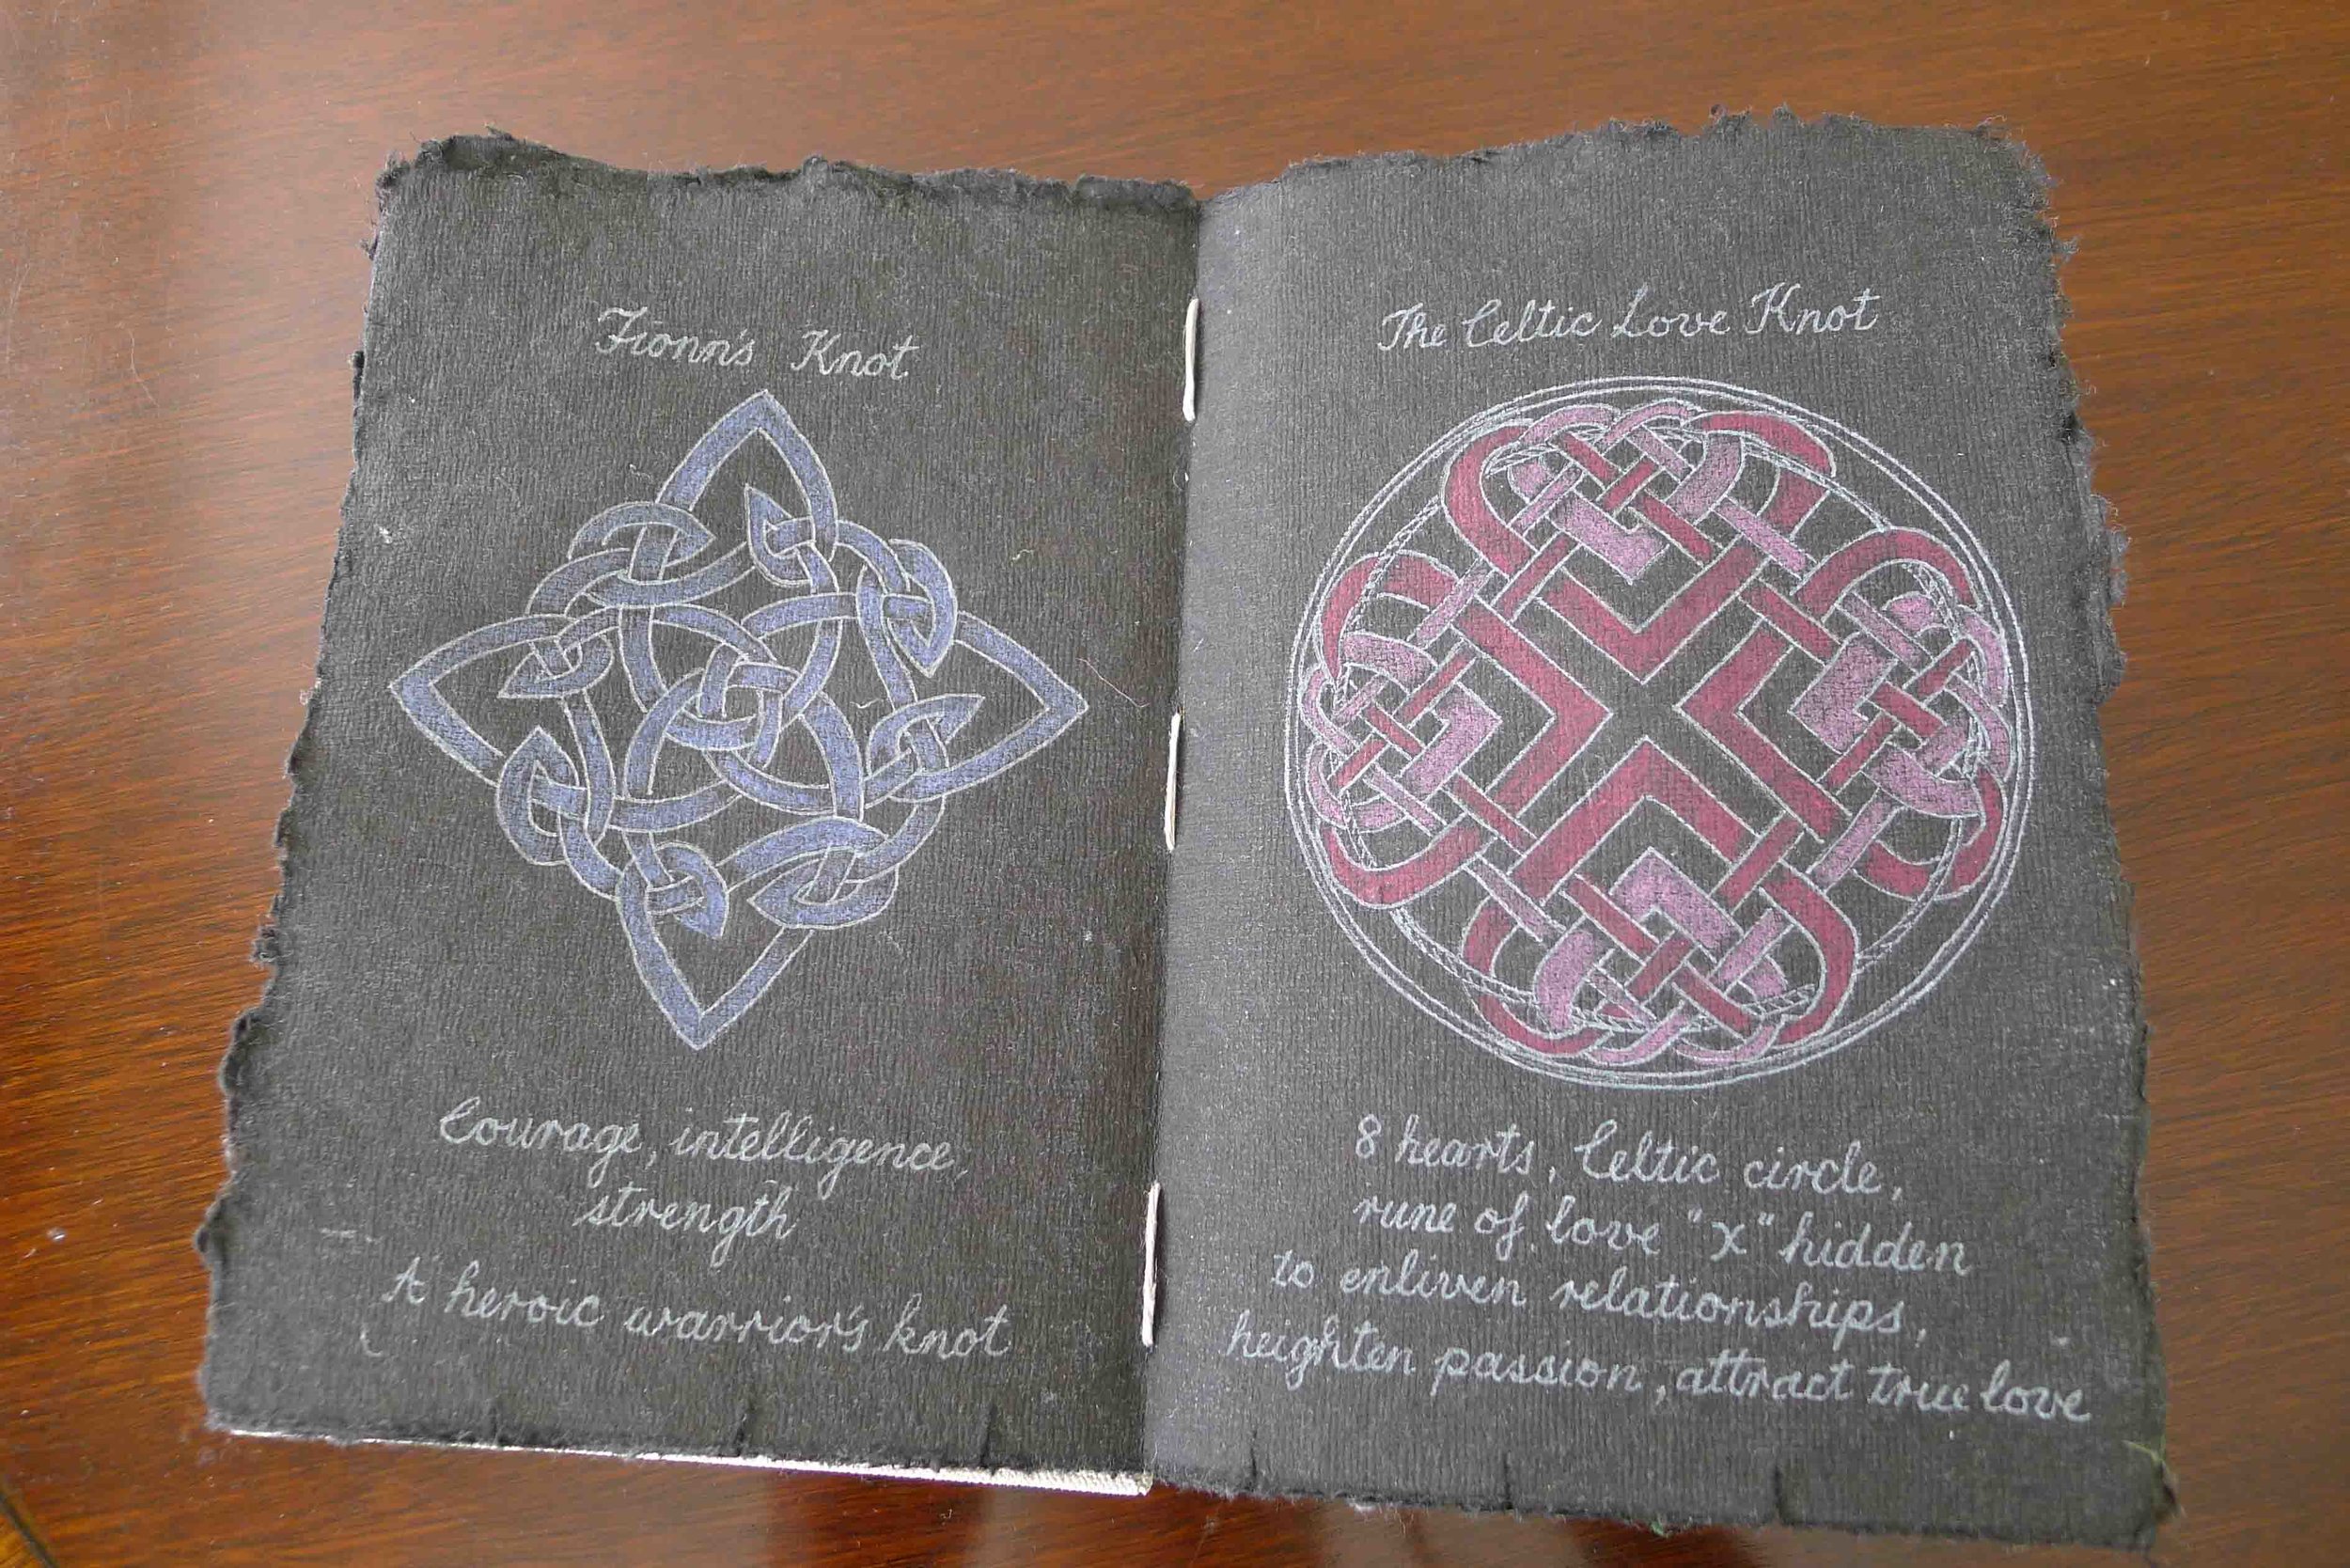 Fionn's Knot
Courage, intelligence,
strength
A heroic warrior's knot
The Celtic Love Knot
8 hearts, Celtic circle,
rune of love "x" hidden
to enliven relationships,
heighten passion, attract true love